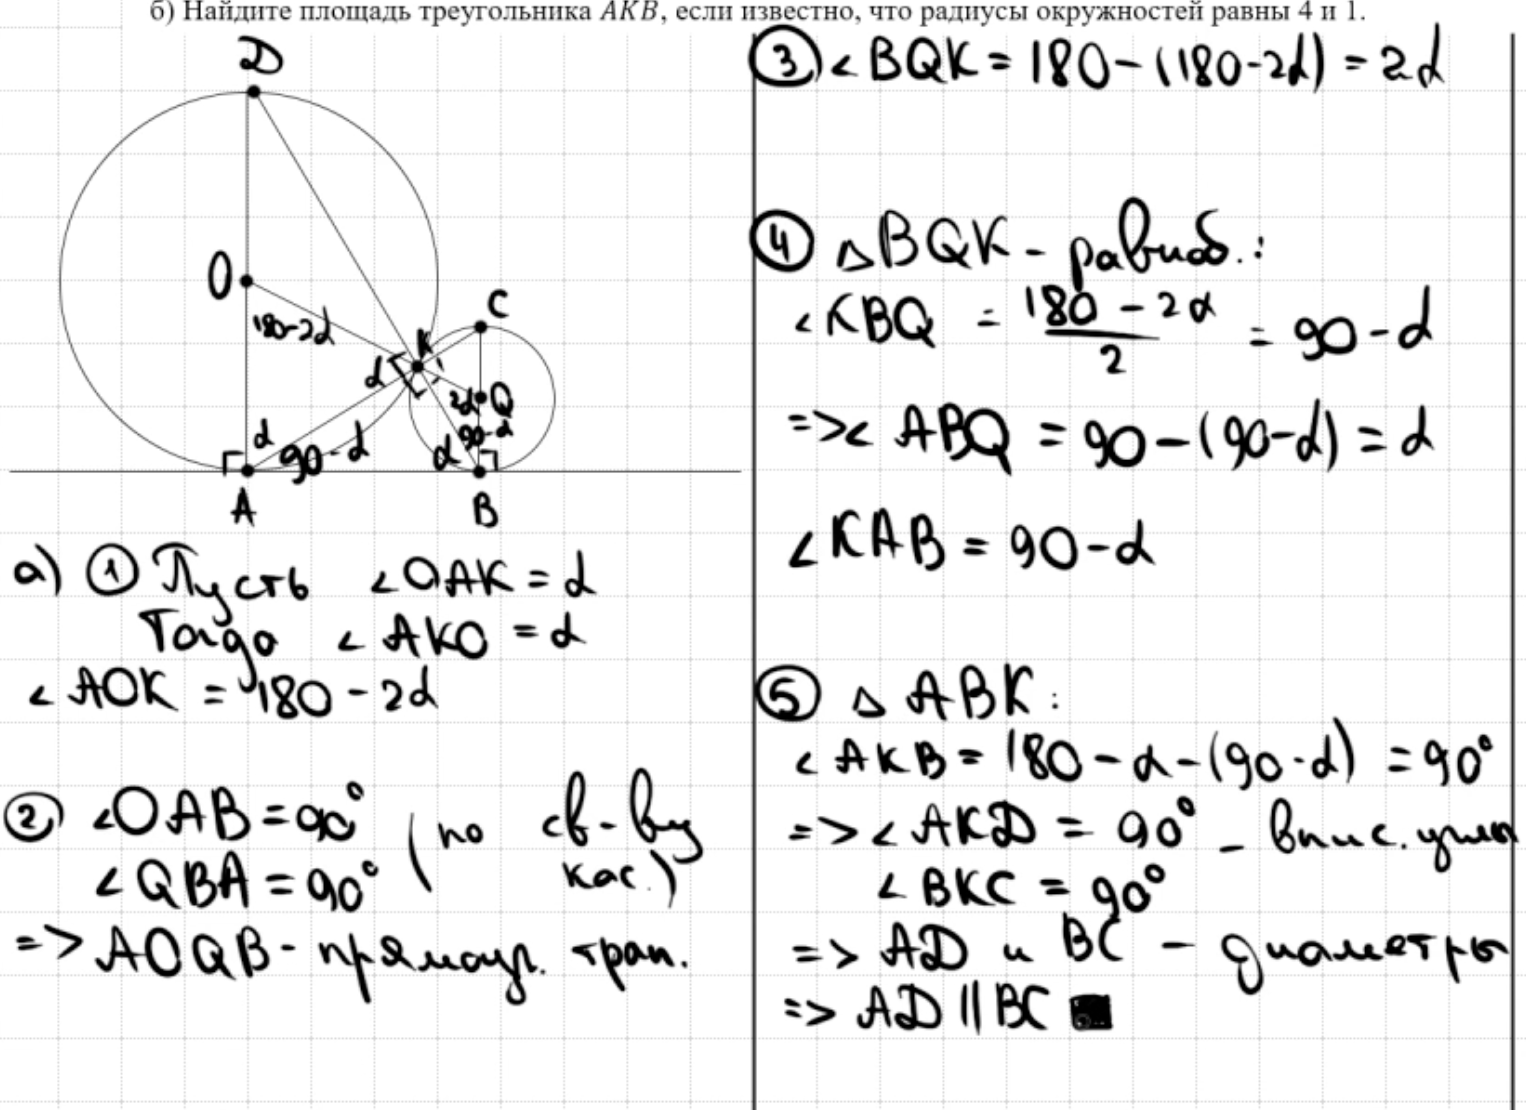 б) Найдите площадь треугольника AKB, если известно, что радиусы окружностей равны 4 и 1.
D
O
180-2α
C
K
α
2α
Q
α
90-α
α
90-α
A
B
а) ① Пусть ∠OAK = α
Тогда ∠AKO = α
∠AOK = 180 - 2α
② ∠OAB = 90°
∠QBA = 90° (по св-ву кас.)
=> AOQB - прямоуг. трап.
③ ∠BQK = 180 - (180-2α) = 2α
④ △BQK - равноб.:
∠KBQ = (180 - 2α)/2 = 90 - α
=> ∠ABQ = 90 - (90-α) = α
∠KAB = 90 - α
⑤ △ABK:
∠AKB = 180 - α - (90-α) = 90°
=> ∠AKD = 90° - впис. углы
∠BKC = 90°
=> AD и BC - диаметры
=> AD || BC